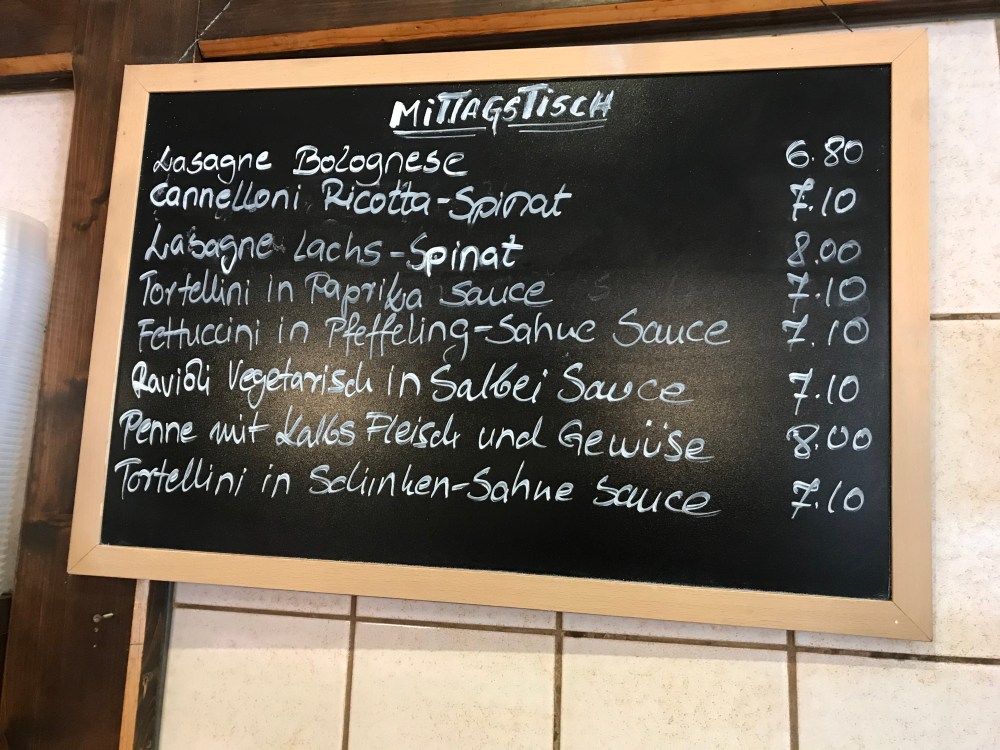 MiTTAGSTiSCH
Lasagne Bolognese 6.80
Cannelloni Ricotta-Spinat 7.10
Lasagne Lachs-Spinat 8.00
Tortellini in Paprika Sauce 7.10
Fettuccini in Pfeffeling-Sahne Sauce 7.10
Ravioli Vegetarisch in Salbei Sauce 7.10
Penne mit Kalbs Fleisch und Gewüse 8.00
Tortellini in Schinken-Sahne Sauce 7.10